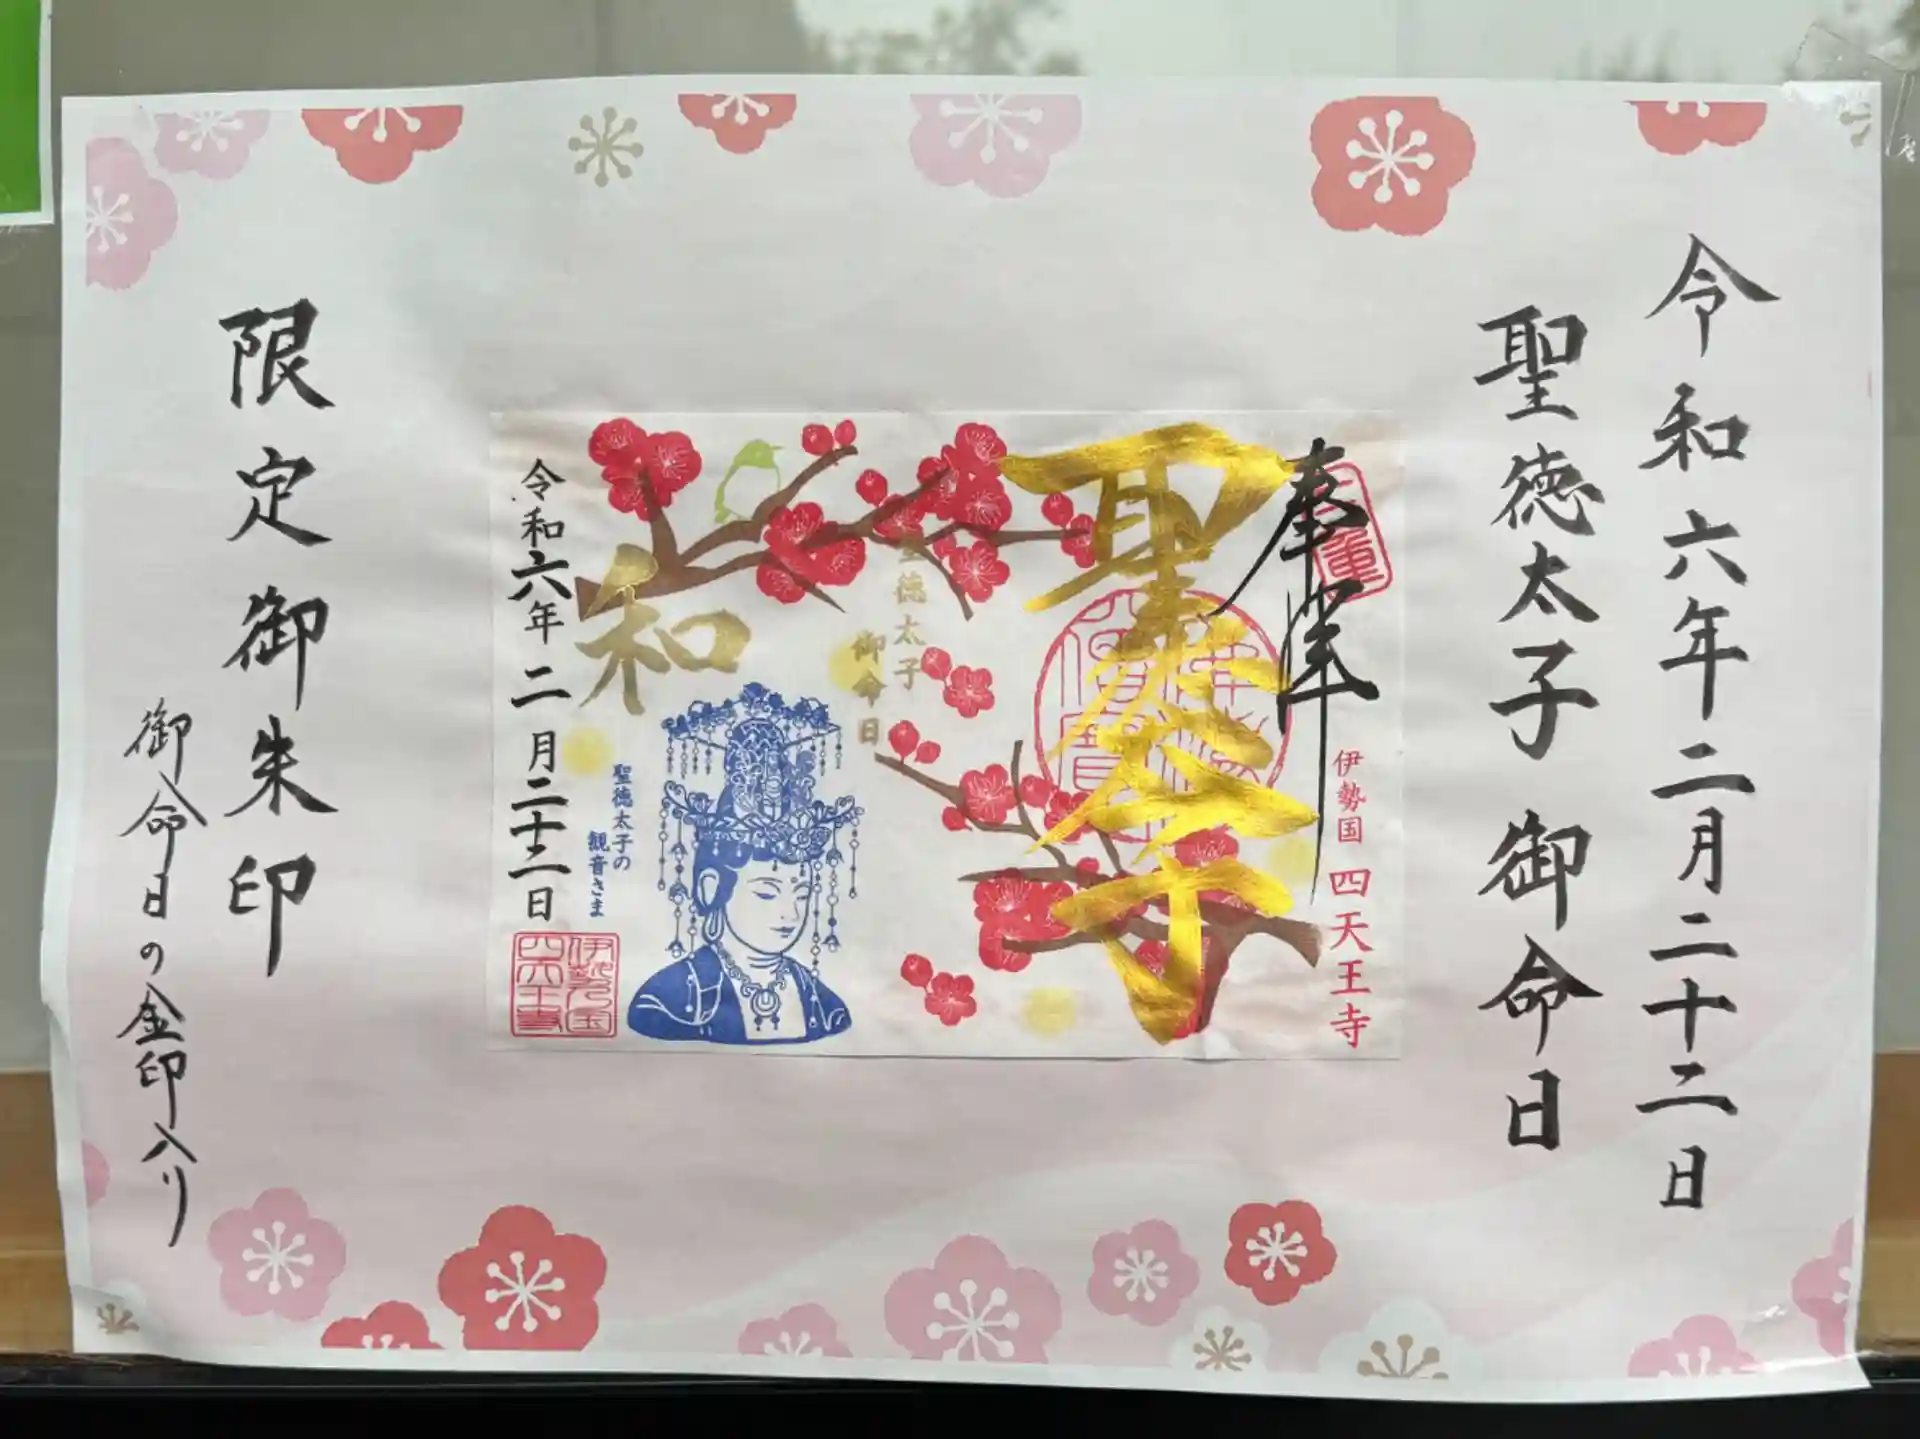 令和六年二月二十二日
聖徳太子 御命日
奉拝
三重
伊勢国 四天王寺
聖徳太子
聖徳太子
御命日
和
聖徳太子の
観音さま
令和六年二月二十二日
伊勢国
四天王寺
限定御朱印
御命日の金印入り